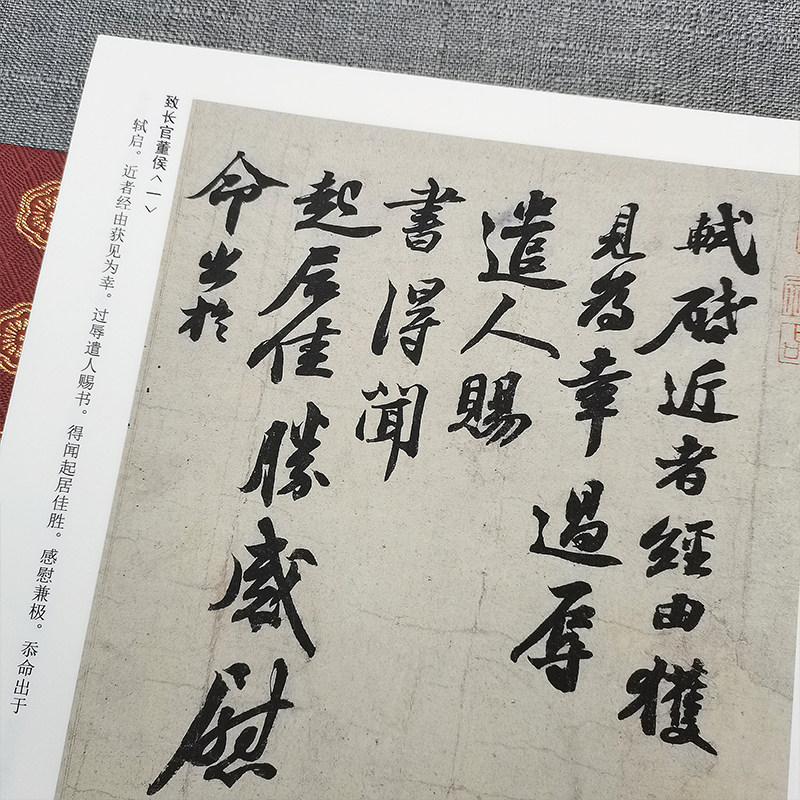 軾啓近者經由獲
見為幸過辱
遣人賜
書得聞
起居佳勝感慰
命出於
致长官董侯<一>
轼启。近者经由获见为幸。过辱遣人赐书。得闻起居佳胜。感慰兼极。忝命出于